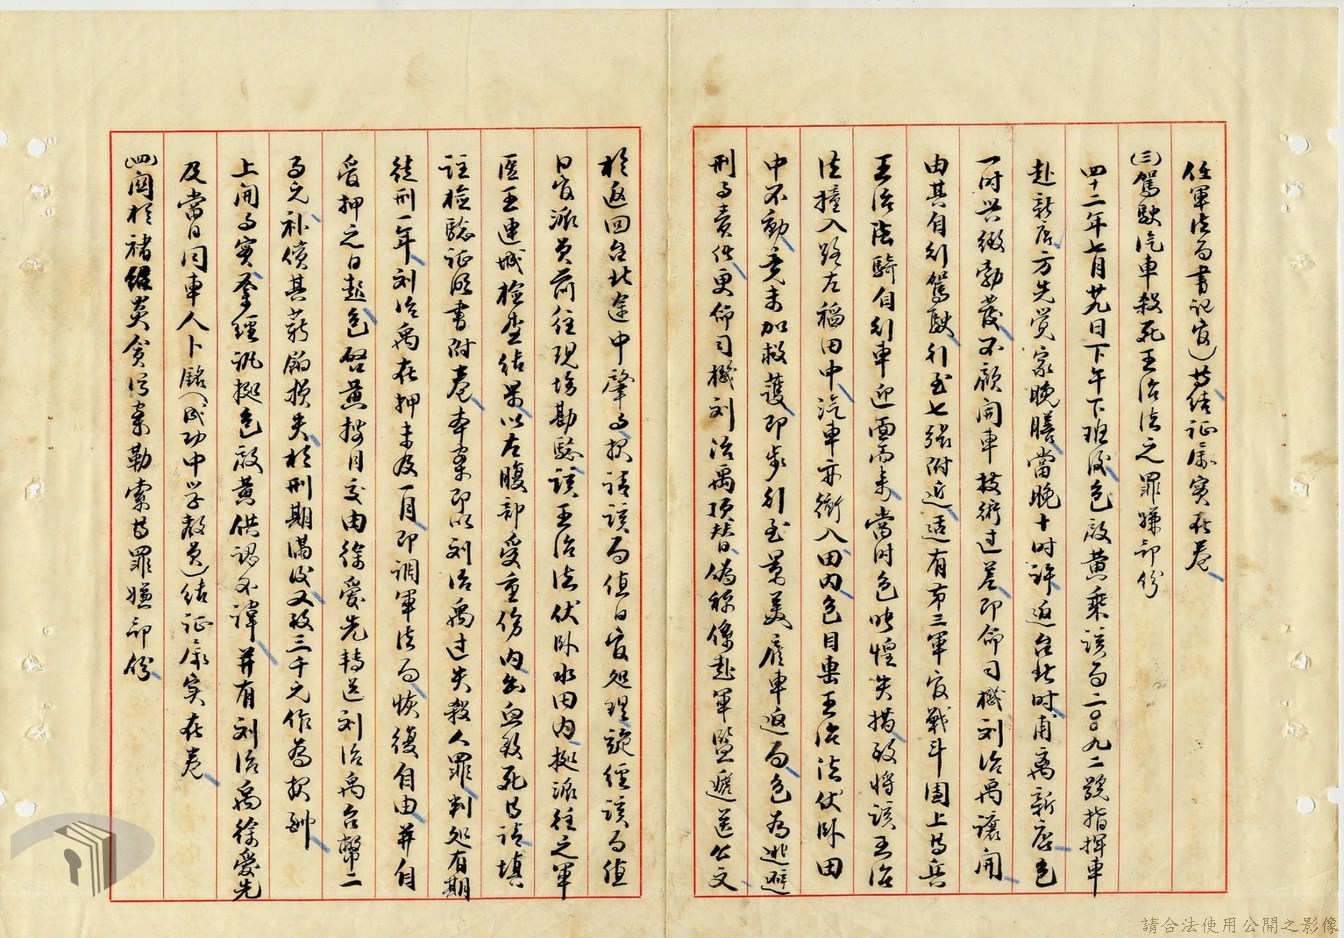 任軍法局書記官)均結証屬實在卷
(三)駕駛汽車殺死王治法之罪嫌部份
四十二年七月廿九日下午下班後包啟黃乘該局二〇〇九二號指揮車
赴新店方先覺家晚膳當晚十时許返台北时甫离新店包
一时兴緻勃發不顧開車技術过差即命司機刘治禹讓開
由其自行駕駛行至七張附近适有第三軍官戰斗团上等兵
王治法騎自行車迎面而来當时包呲惶失措致將該王治
法撞入路左稻田中汽車亦衝入田内包目擊王治法伏卧田
中不動竟未加救護即步行至景美雇車返局包為逃避
刑事責任更命司機刘治禹頂替偽称係赴軍監遞送公文
於返回台北途中肇事报請該局值日官处理諉經該局值
日官派员前往現場勘驗該王治法伏卧水田内挺派往之軍
医王連城檢查結果以左腹部受重傷内出血致死均請填
註檢驗証明書附卷本案即以刘治禹过失殺人罪判处有期
徒刑一年刘治禹在押未及一月即調軍法局恢復自由并自
受押之日起包啟黃按月交由徐愛先轉送刘治禹台幣二百
元补償其薪餉損失於刑期滿後又致三千元作為报酬
上開事實本經訊據包啟黃供認不諱并有刘治禹徐愛先
及當日同車人卜銘(成功中学教員)結証屬实在卷
(四)関於褚繼炎貪污案勒索等罪嫌部份
請合法使用公開之影像